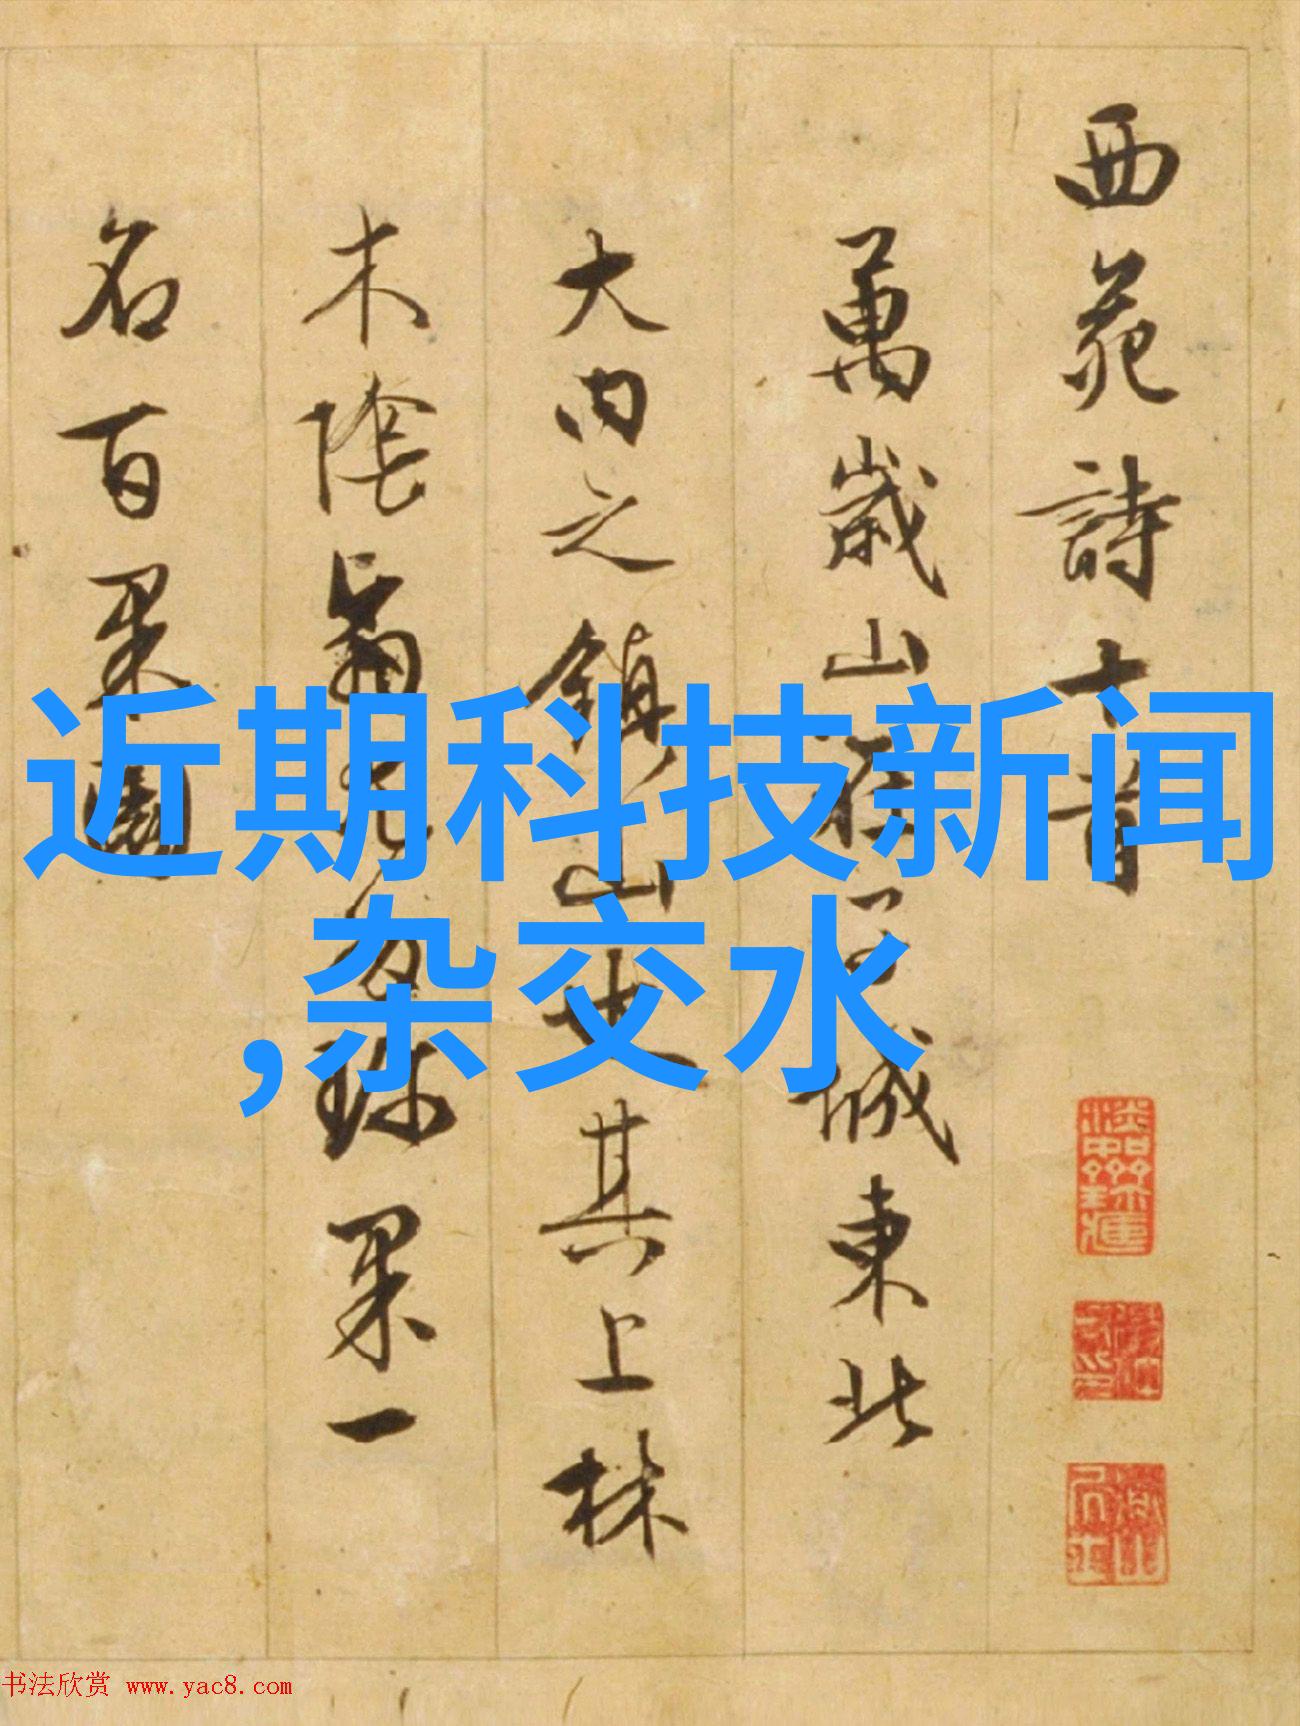 西苑詩十首
萬歲山在子城東北
大內之鎮山也其上林
木陰翳尤多珍果一
名百果園
近期科技新闻
,杂交水
书法欣赏 www.yac8.com